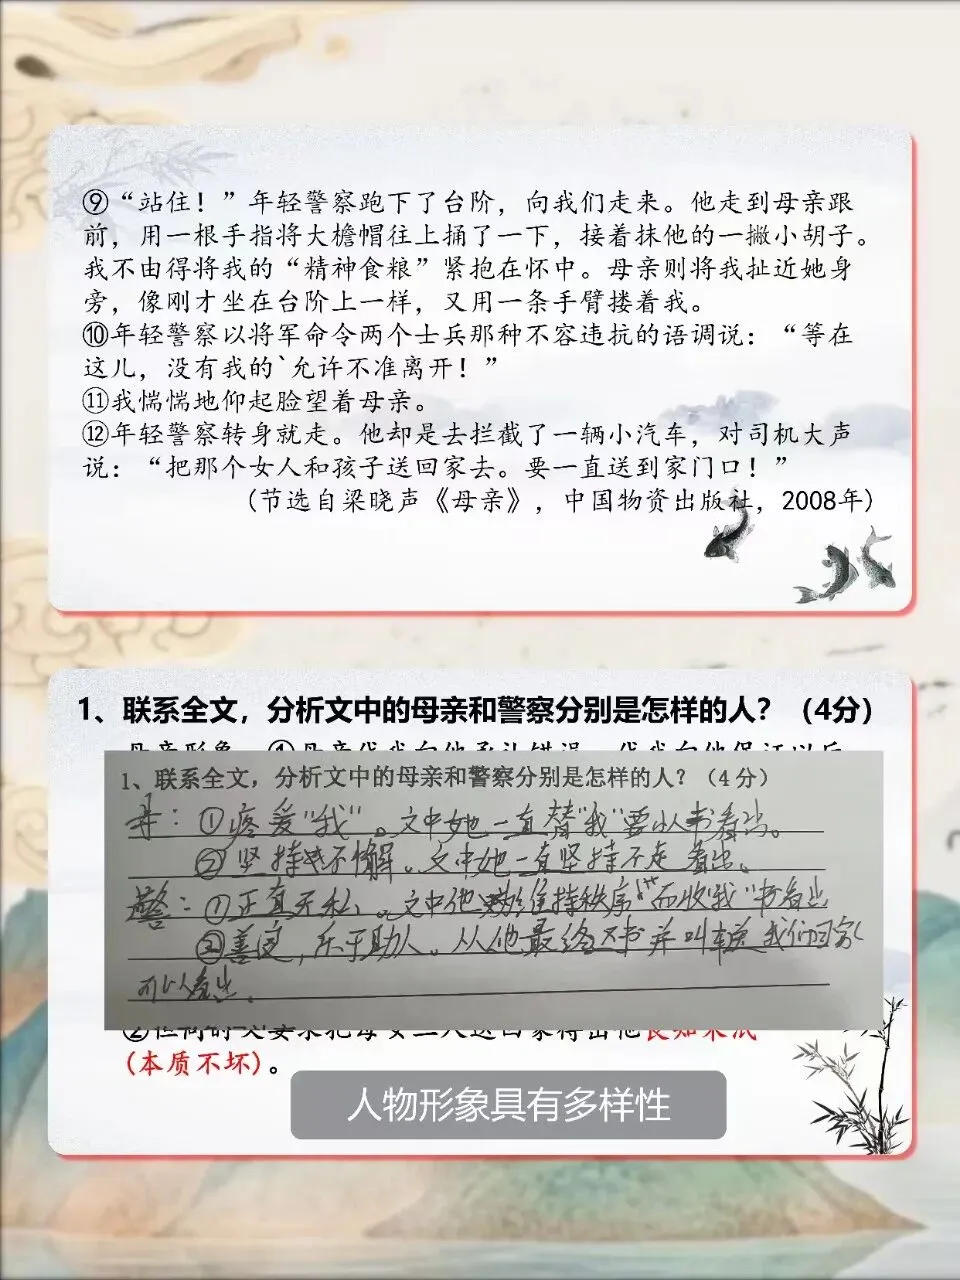 ⑨“站住！”年轻警察跑下了台阶，向我们走来。他走到母亲跟
前，用一根手指将大檐帽往上捅了一下，接着抹他的一撇小胡子。
我不由得将我的“精神食粮”紧抱在怀中。母亲则将我扯近她身
旁，像刚才坐在台阶上一样，又用一条手臂搂着我。
⑩年轻警察以将军命令两个士兵那种不容违抗的语调说：“等在
这儿，没有我的`允许不准离开！”
⑪我惴惴地仰起脸望着母亲。
⑫年轻警察转身就走。他却是去拦截了一辆小汽车，对司机大声
说：“把那个女人和孩子送回家去。要一直送到家门口！”
（节选自梁晓声《母亲》，中国物资出版社，2008年）
1、联系全文，分析文中的母亲和警察分别是怎样的人？（4分）
1、联系全文，分析文中的母亲和警察分别是怎样的人？（4 分）
母：①疼爱“我”。文中她一直替“我”要小人书看出。
②坚持不懈。文中她一直坚持不走看出。
警：①正直无私。文中他维持秩序而收“我”书看出
②善良，乐于助人。从他最终还书并叫车送我们回家
可以看出。
（本质不坏）。
人物形象具有多样性